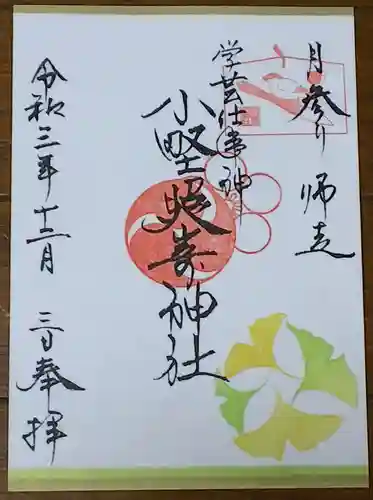 月参り 師走
学芸仕事神
小野照崎神社
令和三年十二月 三日 奉拝